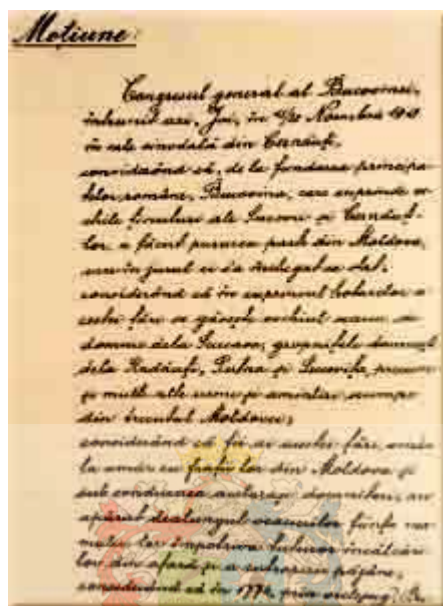 Moțiune
Congresul general al Bucovinei,
întrunit azi, Joi, în 15/28 Noembrie 1918
în sala sinodală din Cernăuți,
considerând că, dela fundarea principa
telor române, Bucovina, care cuprinde ve
chile ținuturi ale Sucevei și Cernăuți
lor a făcut pururea parte din Moldova,
care în jurul ei s'a închegat ca stat;
considerând că în cuprinsul hotarelor a
cestei țări se găsește vechiul scaun de
domnie dela Suceava, gropnițele domnești
dela Rădăuți, Putna și Sucevița, precum
și multe alte urme și amintiri scumpe
din trecutul Moldovei;
considerând că fii ai acestei țări, umăr
la umăr cu frații lor din Moldova și
sub conducerea acelorași domnitori, au
apărat dealungul veacurilor ființa nea
mului lor împotriva tuturor încălcări
lor din afară și a cotropirei păgâne;
considerând că în 1774 prin